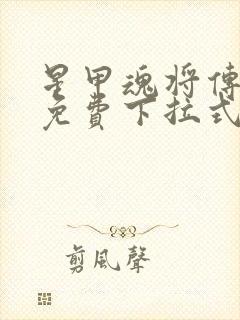 星甲魂将傳
免費下拉式
剪風聲